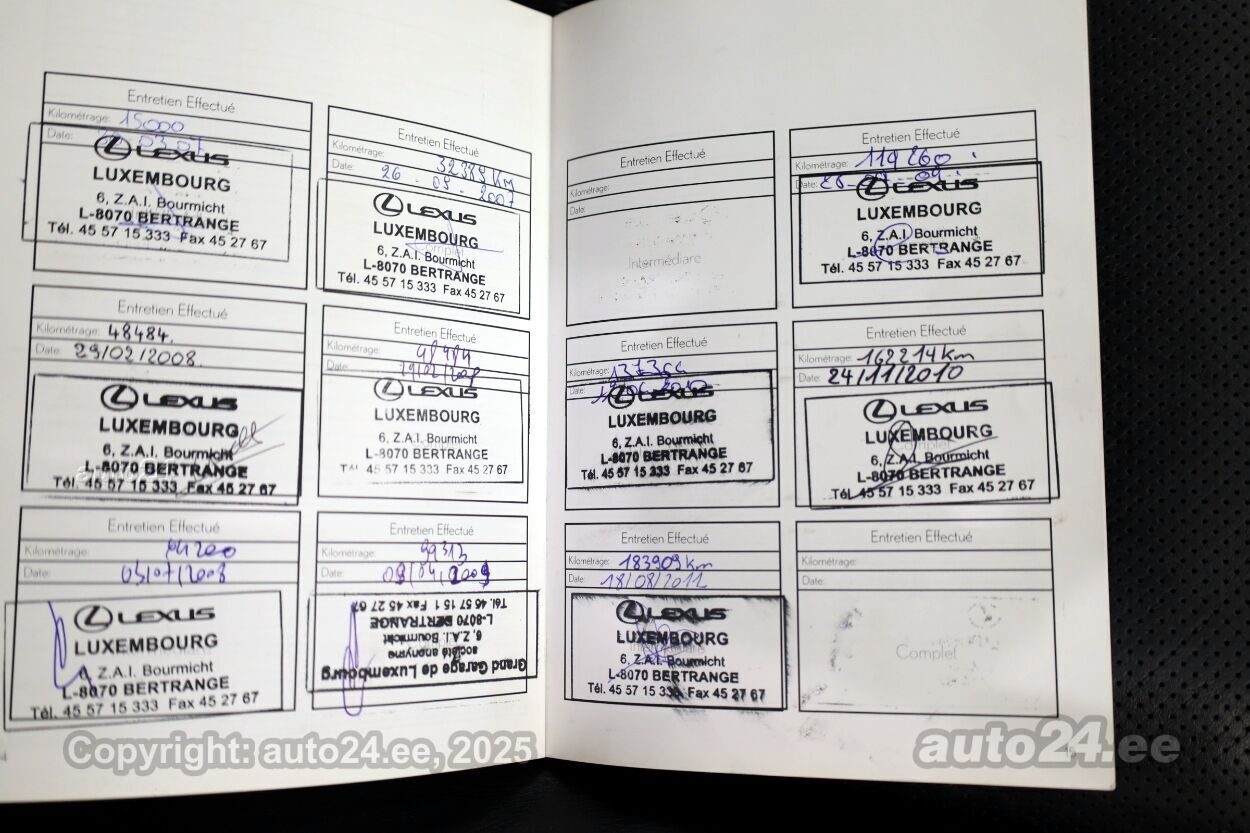 Entretien Effectué
Kilométrage: 15000
Date: 03.07
LEXUS
LUXEMBOURG
6, Z.A.I. Bourmicht
L-8070 BERTRANGE
Tél. 45 57 15 333 Fax 45 27 67
Entretien Effectué
Kilométrage: 32385 Km
Date: 26 - 05 - 2007
LEXUS
LUXEMBOURG
Complet
6, Z.A.I. Bourmicht
L-8070 BERTRANGE
Tél. 45 57 15 333 Fax 45 27 67
Entretien Effectué
Kilométrage: 48484.
Date: 29/02/2008.
LEXUS
LUXEMBOURG
6, Z.A.I. Bourmicht
L-8070 BERTRANGE
Tél. 45 57 15 333 Fax 45 27 67
Entretien Effectué
Kilométrage: 48484
Date:
LEXUS
LUXEMBOURG
6, Z.A.I. Bourmicht
L-8070 BERTRANGE
45 57 15 333 Fax 45 27 67
Entretien Effectué
Kilométrage:
Date: 03/07/2008
LEXUS
LUXEMBOURG
Z.A.I. Bourmicht
L-8070 BERTRANGE
Tél. 45 57 15 333 Fax 45 27 67
Entretien Effectué
Kilométrage: 99313
Date: 09/04/2009
Grand Garage de Luxembourg
société anonyme
6, Z.A.I. Bourmicht
L-8070 BERTRANGE
Tél. 45 57 15 1 Fax 45 27 67
Entretien Effectué
Kilométrage:
Date:
Intermédiaire
Entretien Effectué
Kilométrage: 119260
Date:
LEXUS
LUXEMBOURG
6, Z.A.I. Bourmicht
L-8070 BERTRANGE
Tél. 45 57 15 333 Fax 45 27 67
Entretien Effectué
Kilométrage:
Date:
LEXUS
LUXEMBOURG
6, Z.A.I. Bourmicht
L-8070 BERTRANGE
Tél. 45 57 15 333 Fax 45 27 67
Entretien Effectué
Kilométrage: 162214km
Date: 24/11/2010
LEXUS
LUXEMBOURG
6, Z.A.I. Bourmicht
L-8070 BERTRANGE
Tél. 45 57 15 333 Fax 45 27 67
Entretien Effectué
Kilométrage: 183909 km
Date: 18/08/2011
LEXUS
LUXEMBOURG
6, Z.A.I. Bourmicht
L-8070 BERTRANGE
Tél. 45 57 15 333 Fax 45 27 67
Entretien Effectué
Kilométrage:
Date:
Complet
Copyright: auto24.ee, 2025
auto24.ee